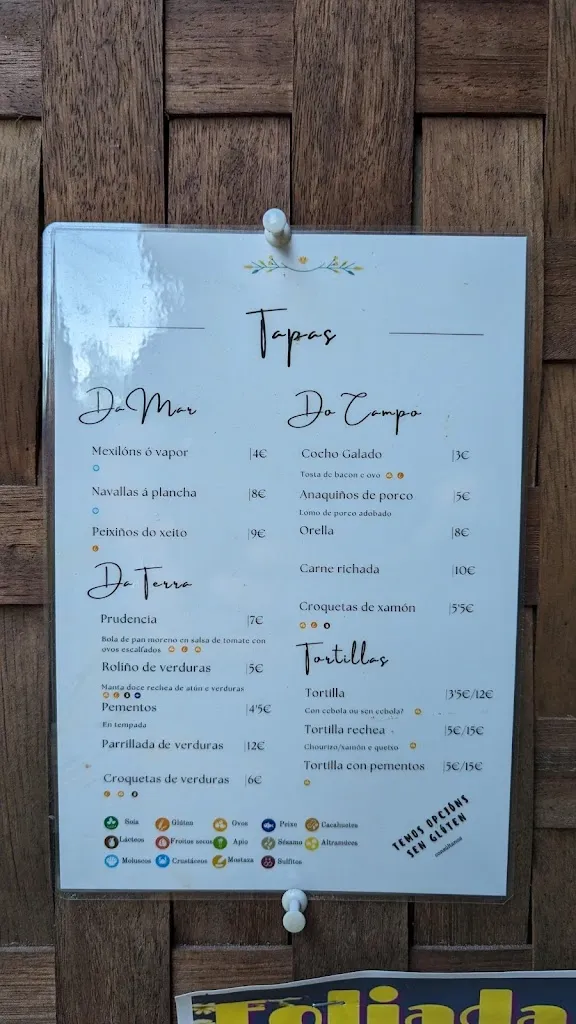 Tapas
Da Mar
Mexilóns ó vapor |4€
Navallas á plancha |8€
Peixiños do xeito |9€
Da Terra
Prudencia |7€
Bola de pan moreno en salsa de tomate con
ovos escalfados
Roliño de verduras |5€
Manta doce rechea de atún e verduras
Pementos |4'5€
En tempada
Parrillada de verduras |12€
Croquetas de verduras |6€
Do Campo
Cocho Galado |3€
Tosta de bacon e ovo
Anaquiños de porco |5€
Lomo de porco adobado
Orella |8€
Carne richada |10€
Croquetas de xamón |5'5€
Tortillas
Tortilla |3'5€/12€
Con cebola ou sen cebola?
Tortilla rechea |5€/15€
Chourizo/xamón e queixo
Tortilla con pementos |5€/15€
Soia Glúten Ovos Peixe Cacahuetes
Lácteos Froitos secos Apio Sésamo Altramuces
Moluscos Crustáceos Mostaza Sulfitos
TEMOS OPCIÓNS
SEN GLÚTEN
Foliada